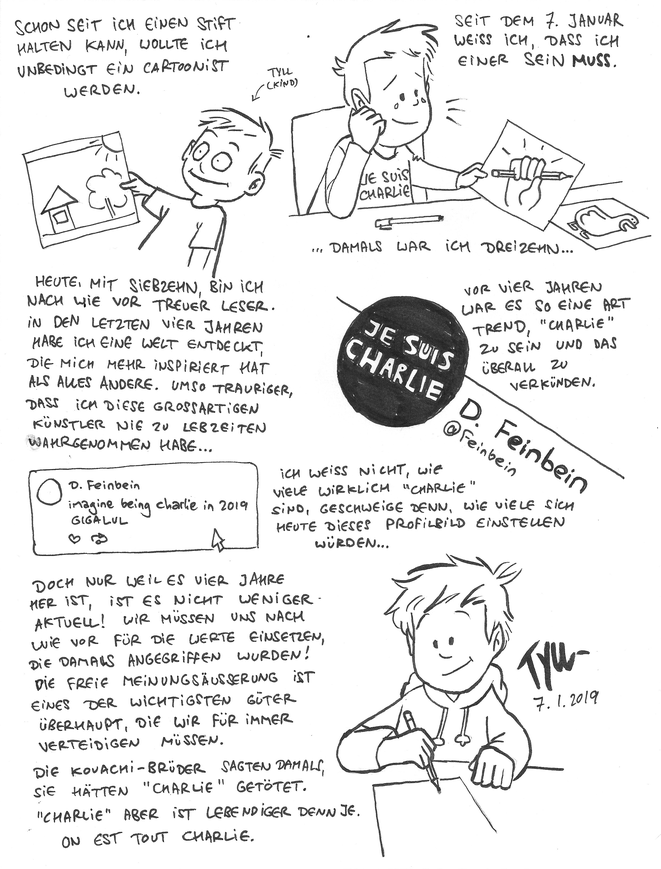 SCHON SEIT ICH EINEN STIFT
HALTEN KANN, WOLLTE ICH
UNBEDINGT EIN CARTOONIST
WERDEN.
TYLL
(KIND)
SEIT DEM 7. JANUAR
WEISS ICH, DASS ICH
EINER SEIN MUSS.
JE SUIS
CHARLIE
... DAMALS WAR ICH DREIZEHN...
HEUTE, MIT SIEBZEHN, BIN ICH
NACH WIE VOR TREUER LESER.
IN DEN LETZTEN VIER JAHREN
HABE ICH EINE WELT ENTDECKT,
DIE MICH MEHR INSPIRIERT HAT
ALS ALLES ANDERE. UMSO TRAURIGER,
DASS ICH DIESE GROSSARTIGEN
KÜNSTLER NIE ZU LEBZEITEN
WAHRGENOMMEN HABE...
JE SUIS
CHARLIE
VOR VIER JAHREN
WAR ES SO EINE ART
TREND, "CHARLIE"
ZU SEIN UND DAS
ÜBERALL ZU
VERKÜNDEN.
D. Feinbein
@Feinbein
D. Feinbein
imagine being charlie in 2019
GIGALUL
ICH WEISS NICHT, WIE
VIELE WIRKLICH "CHARLIE"
SIND, GESCHWEIGE DENN, WIE VIELE SICH
HEUTE DIESES PROFILBILD EINSTELLEN
WÜRDEN...
DOCH NUR WEIL ES VIER JAHRE
HER IST, IST ES NICHT WENIGER
AKTUELL! WIR MÜSSEN UNS NACH
WIE VOR FÜR DIE WERTE EINSETZEN,
DIE DAMALS ANGEGRIFFEN WURDEN!
DIE FREIE MEINUNGSÄUSSERUNG IST
EINES DER WICHTIGSTEN GÜTER
ÜBERHAUPT, DIE WIR FÜR IMMER
VERTEIDIGEN MÜSSEN.
DIE KOUACHI-BRÜDER SAGTEN DAMALS,
SIE HÄTTEN "CHARLIE" GETÖTET.
"CHARLIE" ABER IST LEBENDIGER DENN JE.
ON EST TOUT CHARLIE.
TYLL
7.1.2019